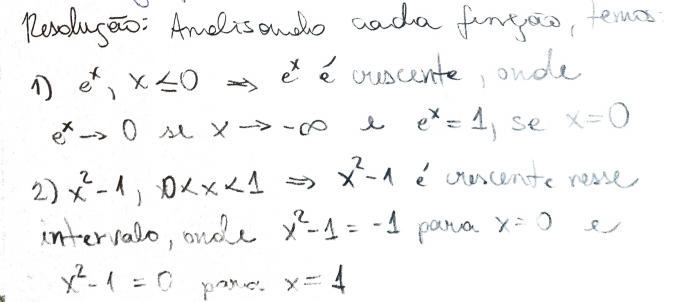 Resolução: Analisando cada função, temos:
1) eˣ, x ≤ 0 ⇒ eˣ é crescente, onde
eˣ → 0 se x → -∞ e eˣ = 1, se x = 0
2) x² - 1, 0 < x < 1 ⇒ x² - 1 é crescente nesse
intervalo, onde x² - 1 = -1 para x = 0 e
x² - 1 = 0 para x = 1